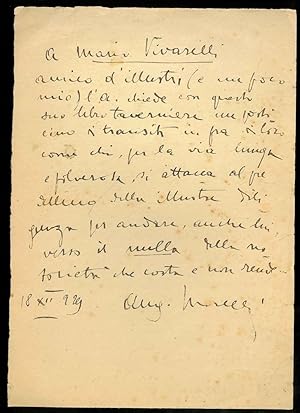 A Mario Vivarelli
amico d'illustri (e un poco
mio) l'A. chiede con questo
suo libro taverniere un posti
cino di transito in fra di loro
come chi, per la via lunga
e polverosa, si attacca al pre
dellino della illustre dili
genza per andare, anche lui,
verso il nulla della no
torietà che costa e non rende.
18 XII 929 Aug.